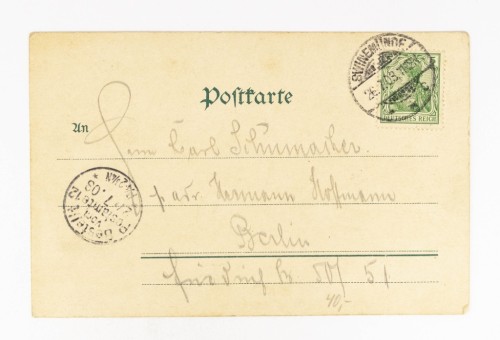 SWINEMÜNDE
26.7.03.
DEUTSCHES REICH
Postkarte
An
Herrn Carl Schumacher.
p adr Hermann Hoffmann
Berlin
Friedrichstr 50/51
Bestellt
vom
Postamte
27 7 03
40,-